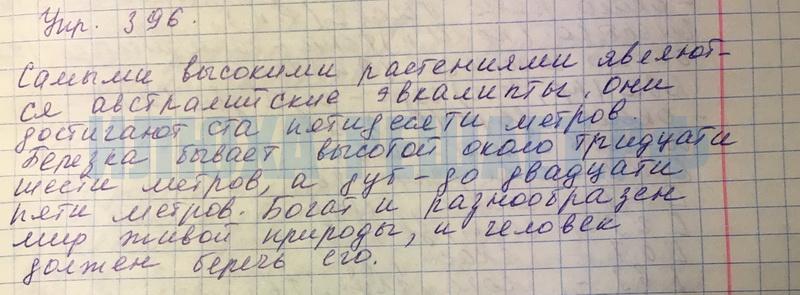 Упр. 396.
Самыми высокими растениями являют-
ся австралийские эвкалипты. Они
достигают ста пятидесяти метров.
Березка бывает высотой около тридцати
шести метров, а дуб - до двадцати
пяти метров. Богат и разнообразен
мир живой природы, и человек
должен беречь его.